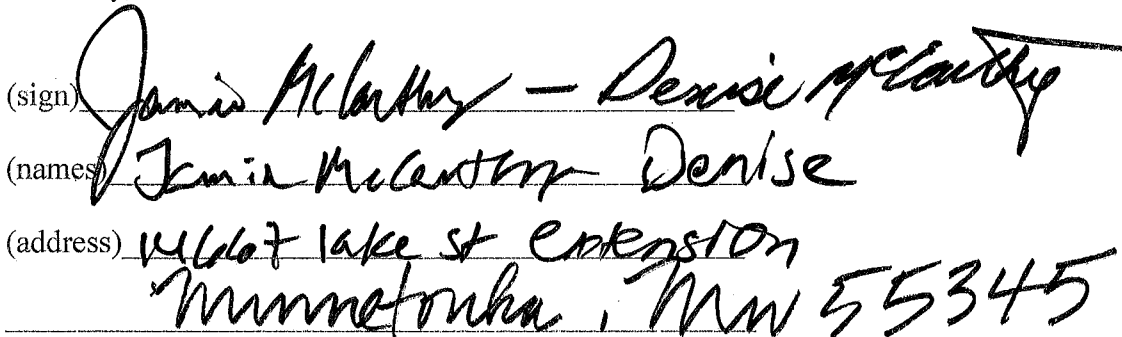 (sign) Jamin McCarthy — Denise McCarthy
(names) Jamin McCarthy Denise
(address) 14667 lake st extension
Minnetonka, Mn 55345